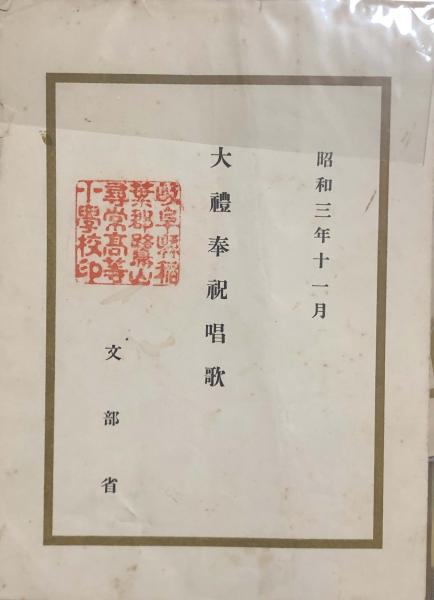 昭和三年十一月
大禮奉祝唱歌
岐阜縣稻
葉郡鷺山
尋常高等
小學校印
文部省